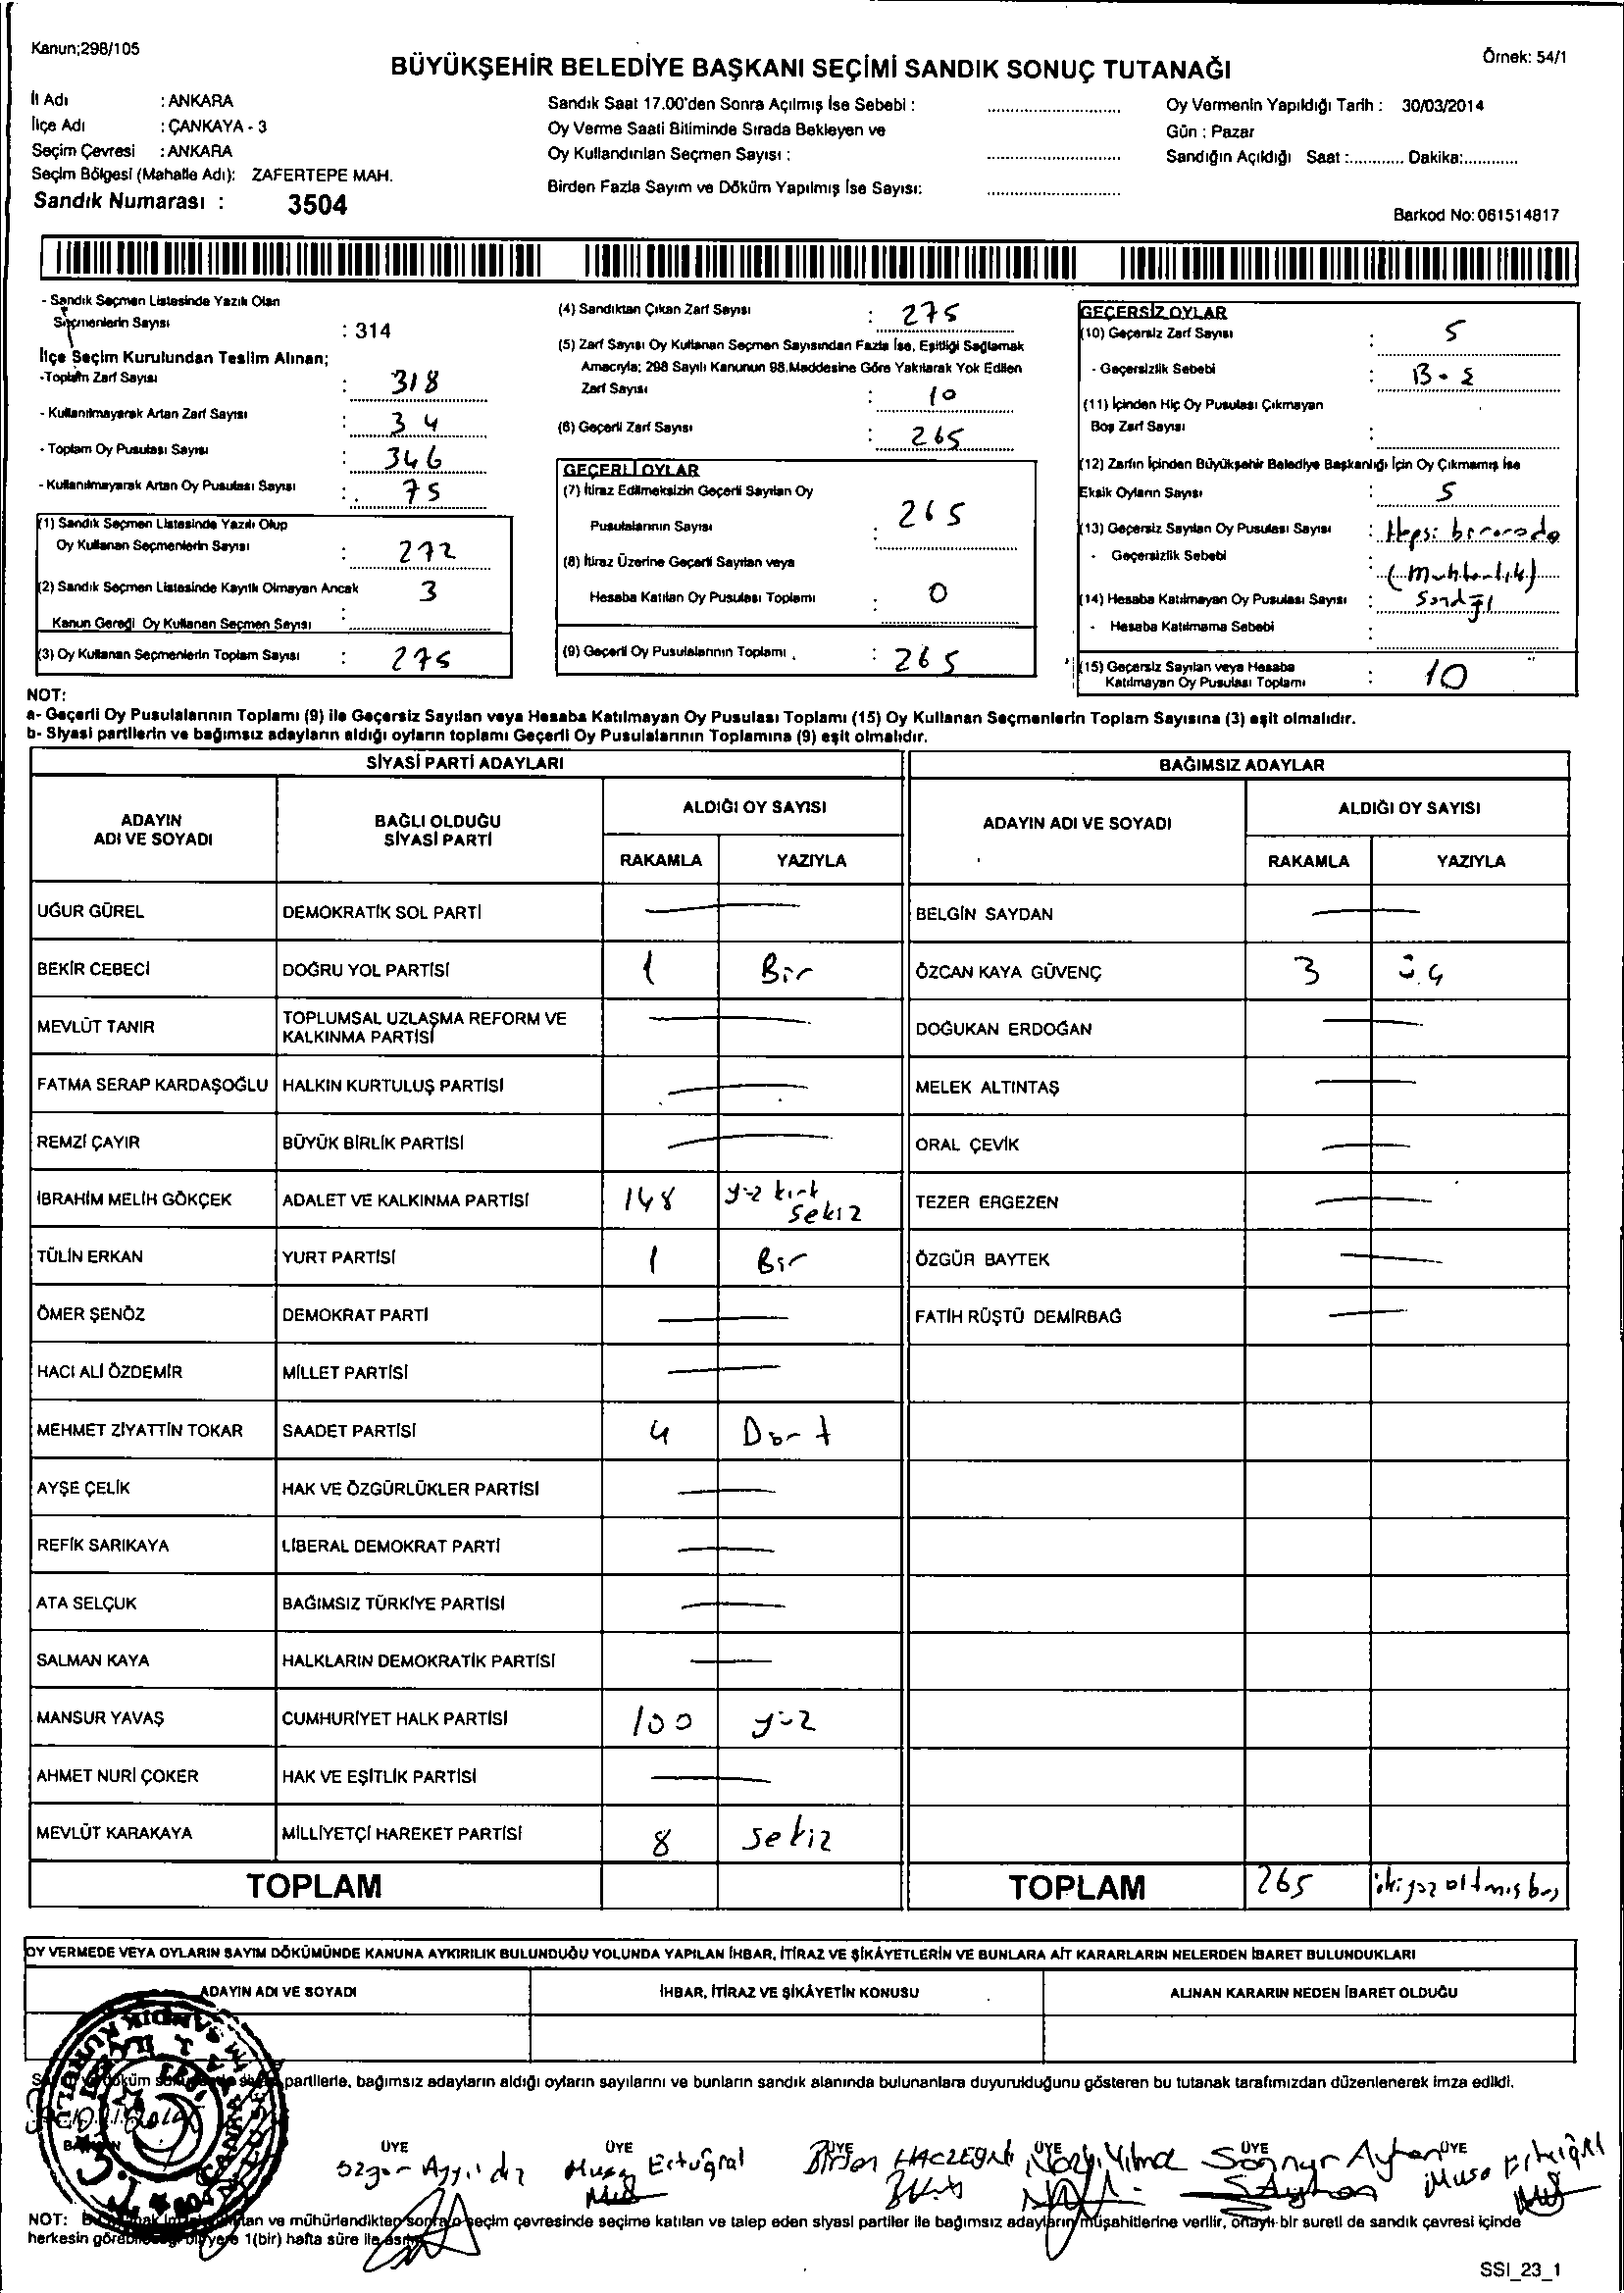 Kanun;298/105
Örnek: 54/1
BÜYÜKŞEHİR BELEDİYE BAŞKANI SEÇİMİ SANDIK SONUÇ TUTANAĞI
İl Adı : ANKARA
İlçe Adı : ÇANKAYA - 3
Seçim Çevresi : ANKARA
Seçim Bölgesi (Mahalle Adı): ZAFERTEPE MAH.
Sandık Numarası : 3504
Sandık Saat 17.00'den Sonra Açılmış İse Sebebi :
Oy Verme Saati Bitiminde Sırada Bekleyen ve
Oy Kullandırılan Seçmen Sayısı :
Birden Fazla Sayım ve Döküm Yapılmış İse Sayısı:
Oy Vermenin Yapıldığı Tarih : 30/03/2014
Gün : Pazar
Sandığın Açıldığı Saat :............ Dakika:............
Barkod No: 061514817
- Sandık Seçmen Listesinde Yazılı Olan
Seçmenlerin Sayısı : 314
İlçe Seçim Kurulundan Teslim Alınan;
-Toplam Zarf Sayısı : 318
- Kullanılmayarak Artan Zarf Sayısı : 34
- Toplam Oy Pusulası Sayısı : 346
- Kullanılmayarak Artan Oy Pusulası Sayısı : 75
(1) Sandık Seçmen Listesinde Yazılı Olup
Oy Kullanan Seçmenlerin Sayısı : 272
(2) Sandık Seçmen Listesinde Kayıtlı Olmayan Ancak
Kanun Gereği Oy Kullanan Seçmen Sayısı : 3
(3) Oy Kullanan Seçmenlerin Toplam Sayısı : 275
(4) Sandıktan Çıkan Zarf Sayısı : 275
(5) Zarf Sayısı Oy Kullanan Seçmen Sayısından Fazla İse, Eşitliği Sağlamak
Amacıyla; 298 Sayılı Kanunun 98.Maddesine Göre Yakılarak Yok Edilen
Zarf Sayısı : 10
(6) Geçerli Zarf Sayısı : 265
GEÇERLİ OYLAR
(7) İtiraz Edilmeksizin Geçerli Sayılan Oy
Pusulalarının Sayısı : 265
(8) İtiraz Üzerine Geçerli Sayılan veya
Hesaba Katılan Oy Pusulası Toplamı : 0
(9) Geçerli Oy Pusulalarının Toplamı : 265
GEÇERSİZ OYLAR
(10) Geçersiz Zarf Sayısı : 5
- Geçersizlik Sebebi :
(11) İçinden Hiç Oy Pusulası Çıkmayan
Boş Zarf Sayısı :
(12) Zarfın İçinden Büyükşehir Belediye Başkanlığı İçin Oy Çıkmamış İse
Eksik Oyların Sayısı : 5
(13) Geçersiz Sayılan Oy Pusulası Sayısı : Hepsi bir arada
- Geçersizlik Sebebi : (muhtarlık)
(14) Hesaba Katılmayan Oy Pusulası Sayısı : sandığı
- Hesaba Katılmama Sebebi :
(15) Geçersiz Sayılan veya Hesaba
Katılmayan Oy Pusulası Toplamı : 10
NOT:
a- Geçerli Oy Pusulalarının Toplamı (9) ile Geçersiz Sayılan veya Hesaba Katılmayan Oy Pusulası Toplamı (15) Oy Kullanan Seçmenlerin Toplam Sayısına (3) eşit olmalıdır.
b- Siyasi partilerin ve bağımsız adayların aldığı oyların toplamı Geçerli Oy Pusulalarının Toplamına (9) eşit olmalıdır.
SİYASİ PARTİ ADAYLARI
BAĞIMSIZ ADAYLAR
ADAYIN ADI VE SOYADI
BAĞLI OLDUĞU SİYASİ PARTİ
ALDIĞI OY SAYISI
RAKAMLA YAZIYLA
ADAYIN ADI VE SOYADI
ALDIĞI OY SAYISI
RAKAMLA YAZIYLA
UĞUR GÜREL DEMOKRATİK SOL PARTİ — BELGİN SAYDAN —
BEKİR CEBECİ DOĞRU YOL PARTİSİ 1 Bir ÖZCAN KAYA GÜVENÇ 3 üç
MEVLÜT TANIR TOPLUMSAL UZLAŞMA REFORM VE KALKINMA PARTİSİ — DOĞUKAN ERDOĞAN —
FATMA SERAP KARDAŞOĞLU HALKIN KURTULUŞ PARTİSİ — MELEK ALTINTAŞ —
REMZİ ÇAYIR BÜYÜK BİRLİK PARTİSİ — ORAL ÇEVİK —
İBRAHİM MELİH GÖKÇEK ADALET VE KALKINMA PARTİSİ 148 yüz kırk sekiz TEZER ERGEZEN —
TÜLİN ERKAN YURT PARTİSİ 1 Bir ÖZGÜR BAYTEK —
ÖMER ŞENÖZ DEMOKRAT PARTİ — FATİH RÜŞTÜ DEMİRBAĞ —
HACI ALİ ÖZDEMİR MİLLET PARTİSİ —
MEHMET ZİYATTİN TOKAR SAADET PARTİSİ 4 Dört
AYŞE ÇELİK HAK VE ÖZGÜRLÜKLER PARTİSİ —
REFİK SARIKAYA LİBERAL DEMOKRAT PARTİ —
ATA SELÇUK BAĞIMSIZ TÜRKİYE PARTİSİ —
SALMAN KAYA HALKLARIN DEMOKRATİK PARTİSİ —
MANSUR YAVAŞ CUMHURİYET HALK PARTİSİ 100 yüz
AHMET NURİ ÇOKER HAK VE EŞİTLİK PARTİSİ —
MEVLÜT KARAKAYA MİLLİYETÇİ HAREKET PARTİSİ 8 sekiz
TOPLAM TOPLAM 265 ikiyüz altmış beş
OY VERMEDE VEYA OYLARIN SAYIM DÖKÜMÜNDE KANUNA AYKIRILIK BULUNDUĞU YOLUNDA YAPILAN İHBAR, İTİRAZ VE ŞİKÂYETLERİN VE BUNLARA AİT KARARLARIN NELERDEN İBARET BULUNDUKLARI
ADAYIN ADI VE SOYADI İHBAR, İTİRAZ VE ŞİKÂYETİN KONUSU ALINAN KARARIN NEDEN İBARET OLDUĞU
partilerle, bağımsız adayların aldığı oyların sayılarını ve bunların sandık alanında bulunanlara duyurulduğunu gösteren bu tutanak tarafımızdan düzenlenerek imza edildi.
ÜYE ÜYE ÜYE ÜYE ÜYE ÜYE
Özgür Ayyıldız Musa Ertuğral Nazlı Yılmaz Songur Ayhan Musa Ertuğral
NOT: ve mühürlendikten sonra o seçim çevresinde seçime katılan ve talep eden siyasi partiler ile bağımsız adayların müşahitlerine verilir, onaylı bir sureti de sandık çevresi içinde
herkesin görebileceği bir yere 1(bir) hafta süre ile asılır.
SSI_23_1